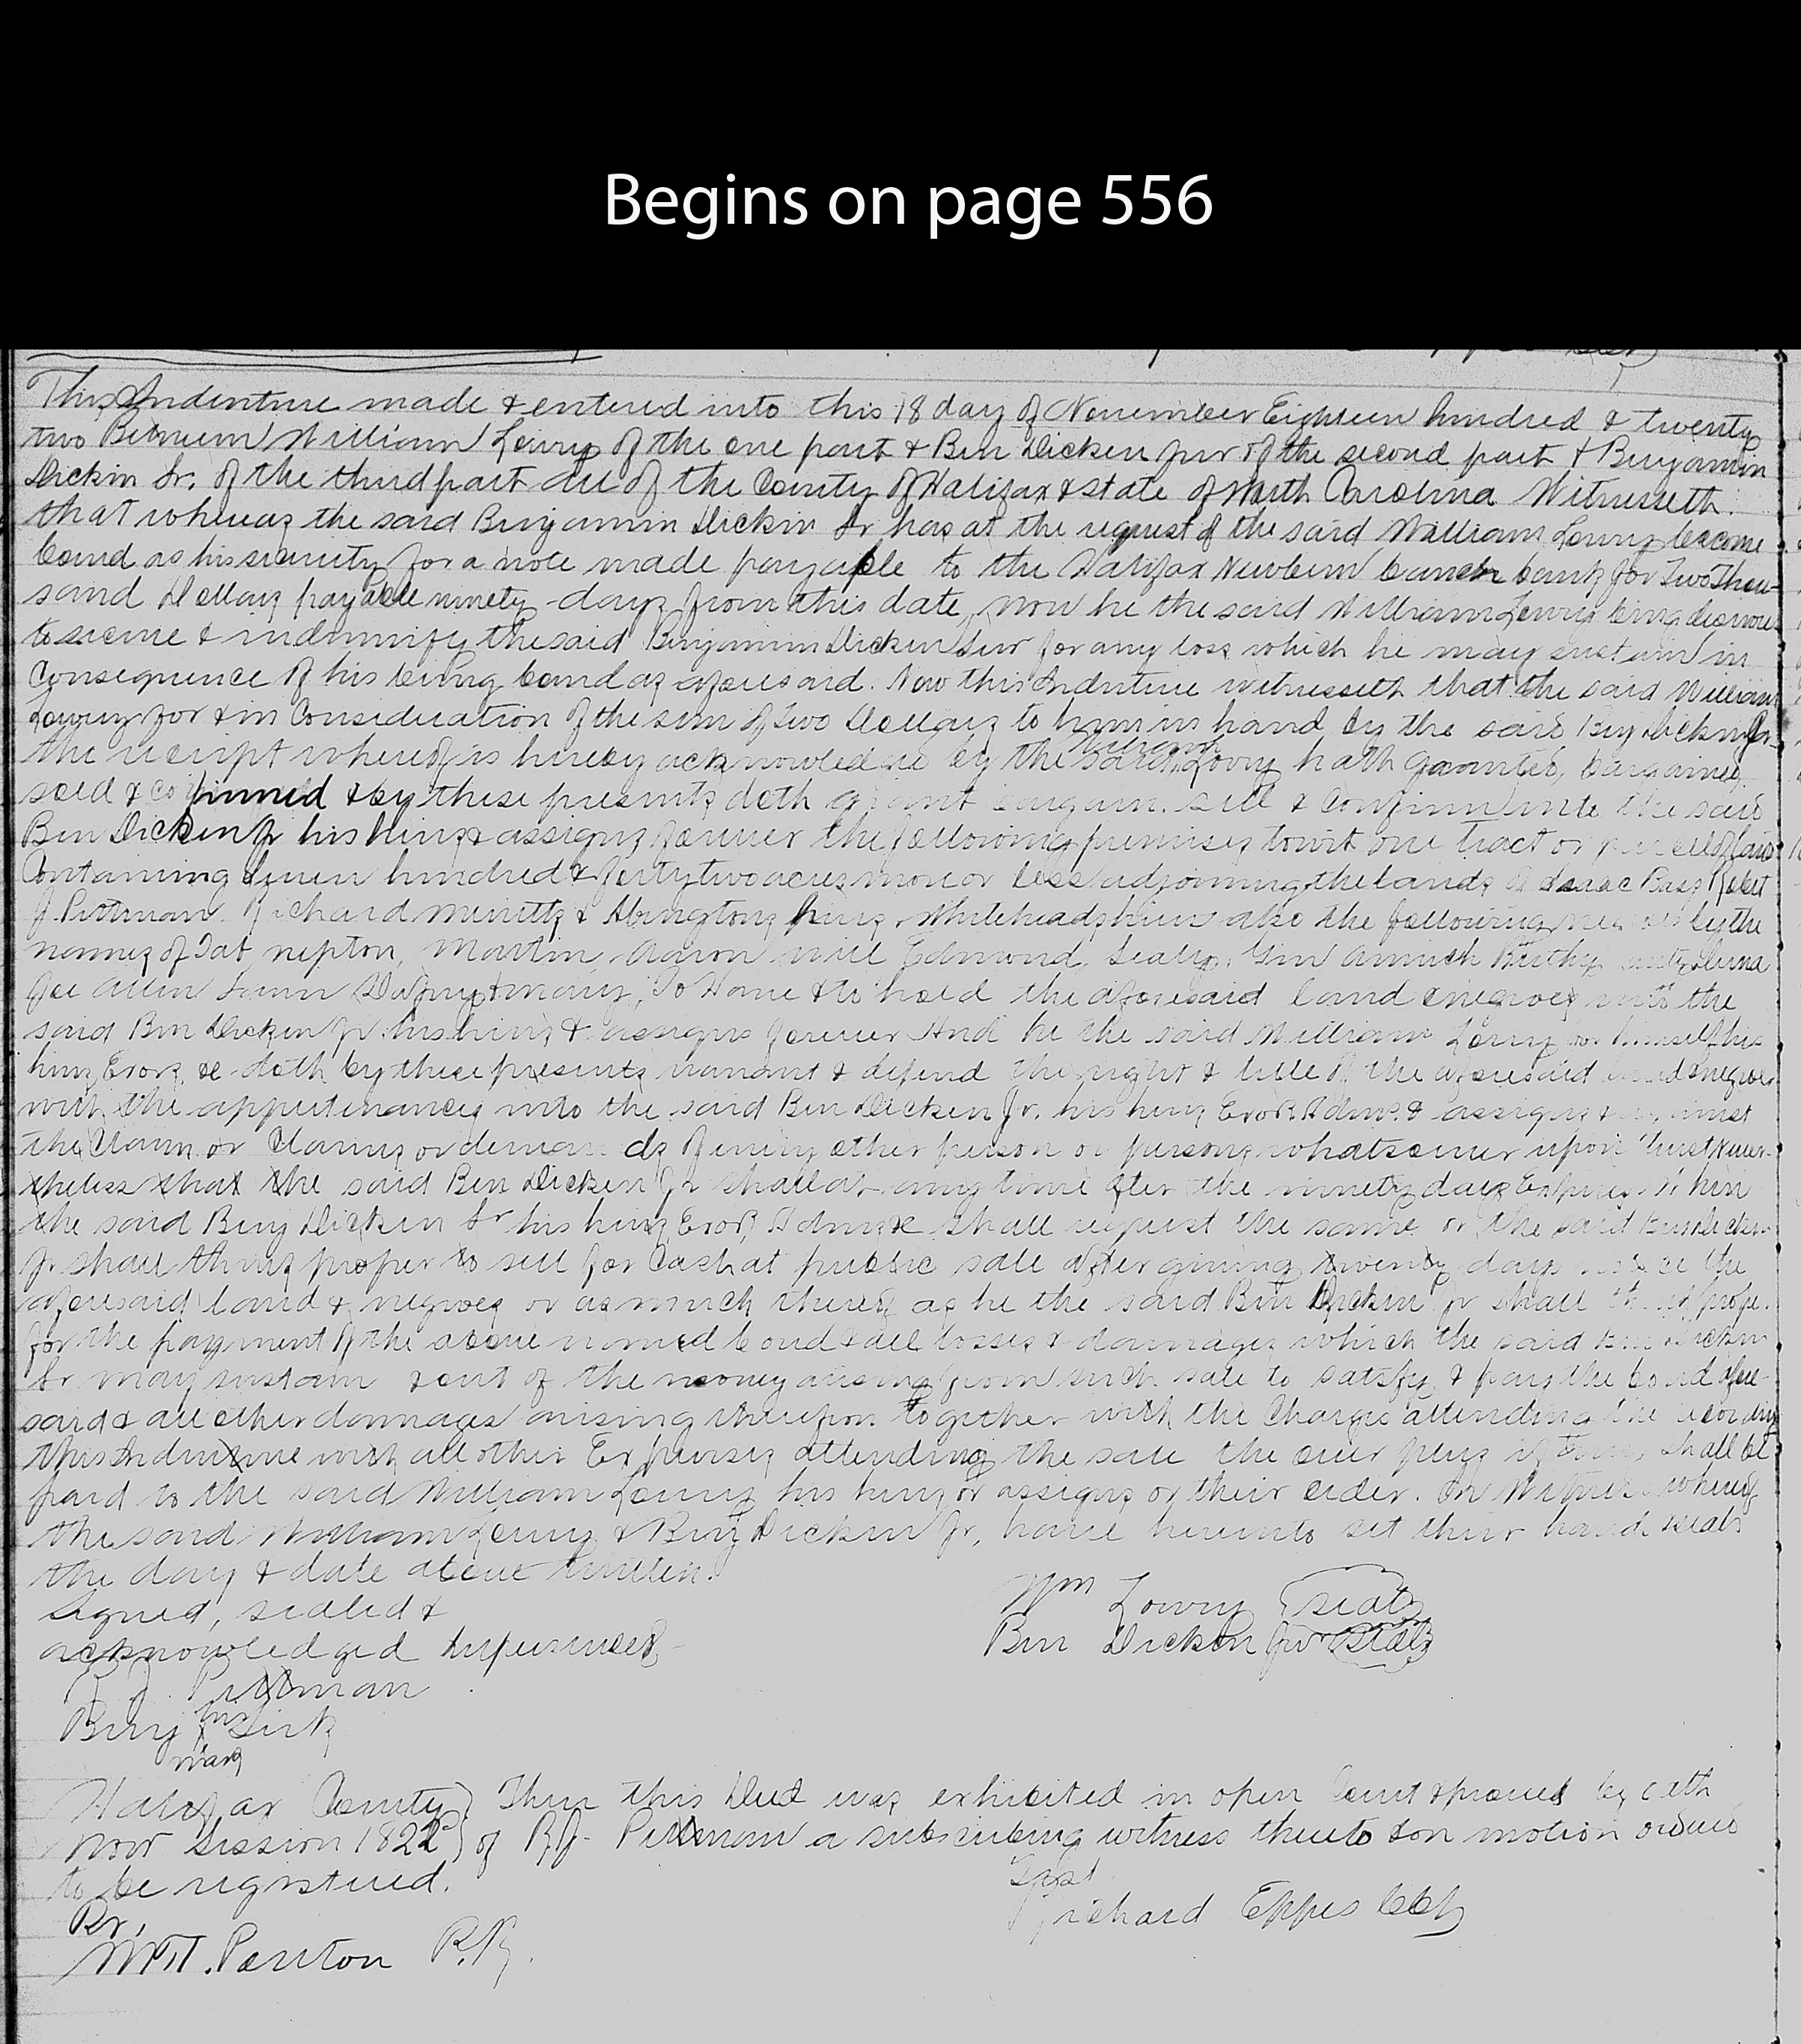 Begins on page 556
This Indenture made & entered into this 18 day of November Eighteen hundred & twenty
two Between William Lowry of the one part & Ben Dicken Jur of the second part & Benjamin
Dickin Sr. of the third part all of the County of Halifax & state of North Carolina Witnesseth
that whereas the said Benjamin Dickin Sr has at the request of the said William Lowry become
bound as his security for a note made payable to the Halifax Newbern branch bank for Two Thou-
sand Dollars payable ninety days from this date, now he the said William Lowry being desirous
to secure & indemnify the said Benjamin Dicken Sur for any loss which he may sustain in
Consequence of his being bound as aforesaid. Now this Indenture witnesseth that the said William
Lowry for & in Consideration of the sum of Two Dollars to him in hand by the said Benj Dickin Jr
the receipt whereof is hereby acknowledged by the said William Lowry hath granted, bargained
sold & confirmed & by these presents doth grant bargain. sell & confirm unto the said
Ben Dicken Jr his heirs & assigns forever the following premises towit one tract or parcel of land
Containing seven hundred & forty two acres more or less adjoining the lands of Isaac Bass Robert
J. Pittman. Richard Merritts & Abingtons heirs, Whiteheads heirs also the following negroes by the
names of Tab, nepton, Martin, Aaron, will Edmond, Sealy, Gin Annich
Joe Allen Dafny & mary, To Have & to hold the aforesaid land & negroes unto the
said Ben Dicken Jr. his heirs & assigns forever And he the said William Lowry for himself his
heirs, Exors, &c doth by these presents warrant & defend the right & title of the aforesaid land & negroes
with the appurtenances unto the said Ben Dicken Jr. his heirs Exors Adms. & assigns & against
the Claim or Claims or demands of every other person or persons whatsoever upon trust never-
theless that the said Ben Dicken Jr shall at any time after the ninety days Expires when
the said Benj Dickin Sr his heirs Exors Adms &c shall request the same or the said Ben Dicken
Jr shall think proper to sell for Cash at public sale after giving twenty days notice the
aforesaid land & negroes or as much thereof as he the said Ben Dickin Jr shall think proper
for the payment of the above named bond & all losses & damages which the said Ben Dicken
Sr may sustain & out of the money arising from such sale to satisfy & pay the bond afore-
said & all other damages arising thereupon together with the Charges attending the recording
this Indenture with all other Expenses attending the sale the over plus if any, shall be
paid to the said William Lowry his heirs or assigns or their order. In Witness whereof
the said William Lowry & Benj Dickin Jr, have hereunto set their hands & seals
the day & date above written.
Signed, sealed &
acknowledged in presence of
Wm Lowry (seal)
Ben Dicken Jur (seal)
R J. Pittman
Benj his mark
Halifax County) Then this Deed was exhibited in open Court & proved by oath
Nov Session 1822) of R J. Pittman a subscribing witness thereto & on motion ordered
to be registered.
Test
Richard Eppes Clk
Pr.